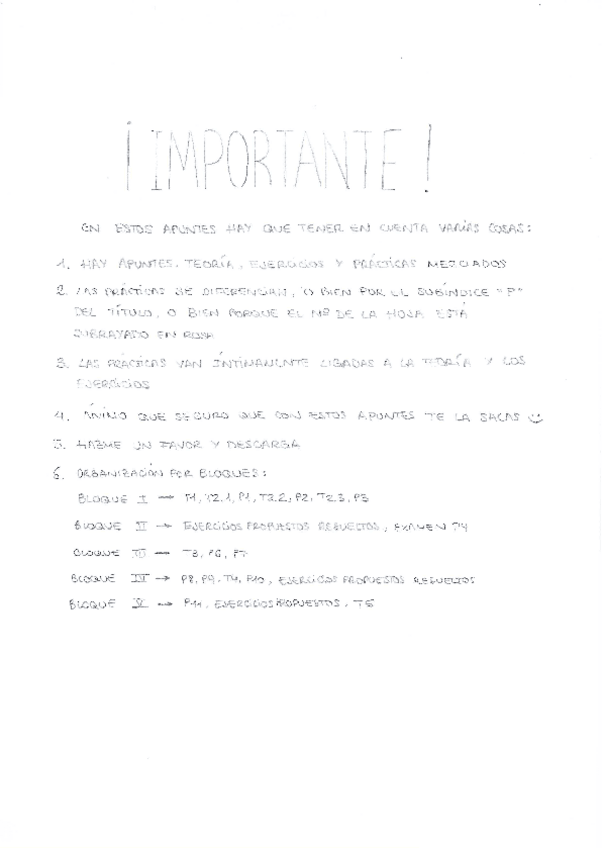 ¡IMPORTANTE!
EN ESTOS APUNTES HAY QUE TENER EN CUENTA VARIAS COSAS:
1. HAY APUNTES, TEORÍA, EJERCICIOS Y PRÁCTICAS MEZCLADOS
2. LAS PRÁCTICAS SE DIFERENCIAN, O BIEN POR EL SUBÍNDICE "P"
DEL TÍTULO, O BIEN PORQUE EL Nº DE LA HOJA ESTA
SUBRAYADO EN ROSA
3. LAS PRÁCTICAS VAN ÍNTIMAMENTE LIGADAS A LA TEORÍA Y LOS
EJERCICIOS
4. ÁNIMO QUE SEGURO QUE CON ESTOS APUNTES TE LA SACAS
5. HAZME UN FAVOR Y DESCARGA
6. ORGANIZACIÓN POR BLOQUES:
BLOQUE I → T1, T2.1, P1, T2.2, P2, T2.3, P3
BLOQUE II → EJERCICIOS PROPUESTOS RESUELTOS, EXAMEN P4
BLOQUE III → T3, P6, P7
BLOQUE IV → P8, P9, T4, P10, EJERCICIOS PROPUESTOS RESUELTOS
BLOQUE V → P11, EJERCICIOS PROPUESTOS, T5